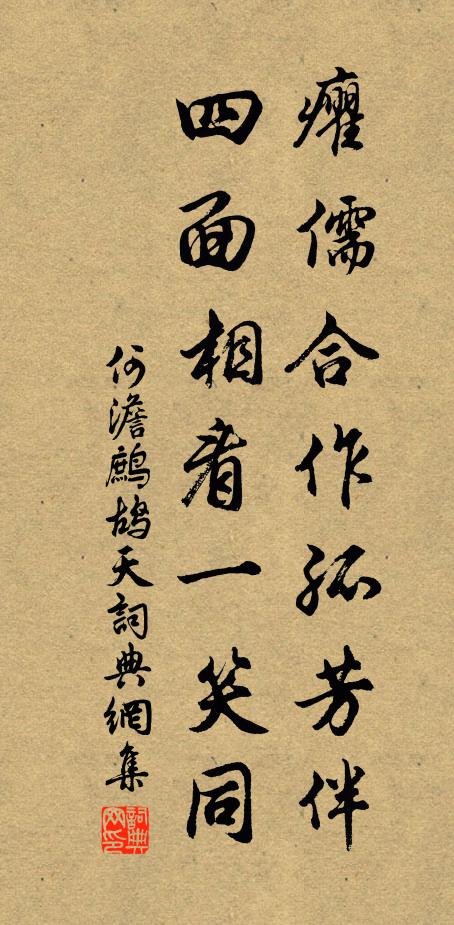 癯儒合作孤芳伴
四面相看一笑同
何澹鷓鴣天詞典網集
詞典網印